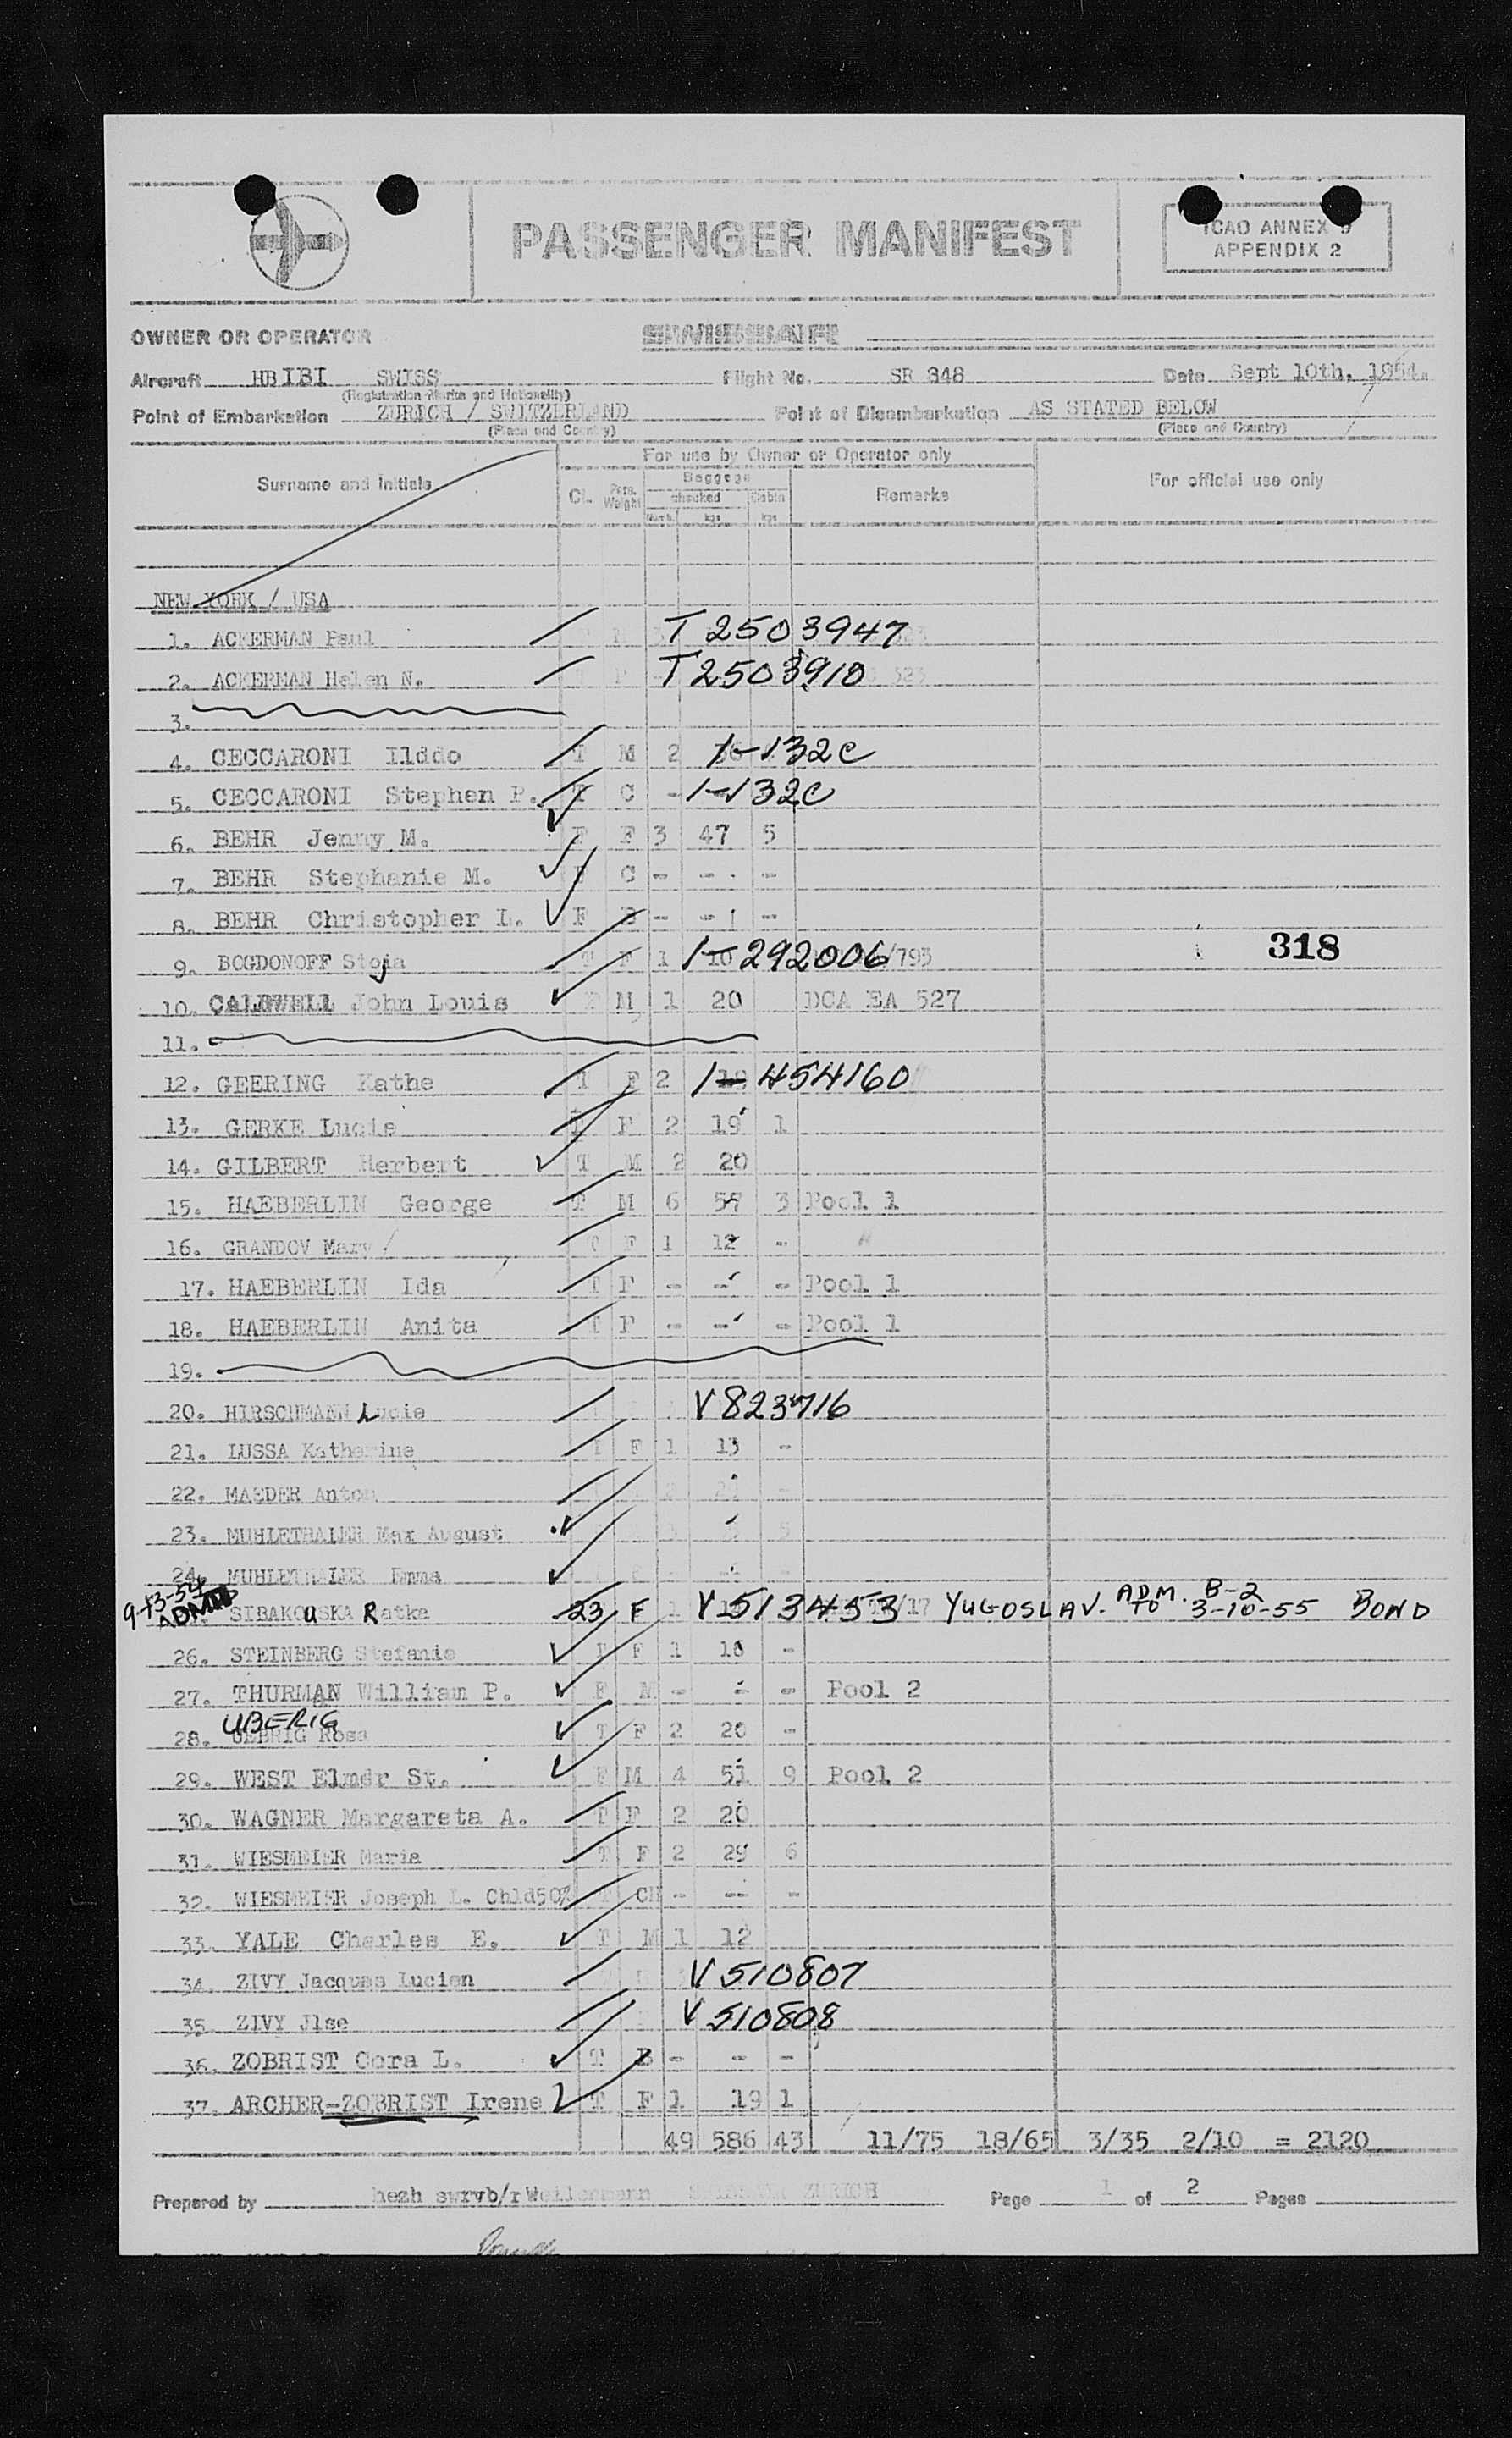 PASSENGER MANIFEST
ICAO ANNEX 9
APPENDIX 2
OWNER OR OPERATOR SWISSAIR
Aircraft HBIBI SWISS Flight No. SR 848 Date Sept 10th, 1954.
(Registration Marks and Nationality)
Point of Embarkation ZURICH / SWITZERLAND Point of Disembarkation AS STATED BELOW
(Place and Country) (Place and Country)
For use by Owner or Operator only
Surname and initials Cl. Pers. Weight Baggage checked Cabin Numb. kgs kgs Remarks For official use only
NEW YORK / USA
1. ACKERMAN Paul T 2503947
2. ACKERMAN Helen N. T 2503910 323
3.
4. CECCARONI Ilddo T M 2 1-132c
5. CECCARONI Stephen P. T C - 1-132c
6. BEHR Jenny M. F F 3 47 5
7. BEHR Stephanie M. F C - - -
8. BEHR Christopher L. F B - - -
318
9. BOGDONOFF Stoja T F 1 10 1-292006 /793
10. CALDWELL John Louis F M 1 20 DCA EA 527
11.
12. GEERING Kathe T F 2 1-454160
13. GERKE Lucie T F 2 19 1
14. GILBERT Herbert T M 2 20
15. HAEBERLIN George T M 6 57 3 Pool 1
16. GRANDOV Mary T F 1 12 -
17. HAEBERLIN Ida T F - - - Pool 1
18. HAEBERLIN Anita T F - - - Pool 1
19.
20. HIRSCHMANN Lucie V 823716
21. LUSSA Katherine T F 1 13 -
22. MAEDER Anton 2 -
23. MUHLETHALER Max August 3 5
24. MUHLETHALER Emma
9-13-54 ADMTD SIBAKOUSKA Ratka 23 F 1 V 513453 /17 YUGOSLAV. ADM. TO B-2 3-10-55 BOND
26. STEINBERG Stefanie T F 1 18 -
27. THURMAN William P. F M - - - Pool 2
UBERIG
28. UEBRIG Rosa T F 2 20 -
29. WEST Elmer St. F M 4 51 9 Pool 2
30. WAGNER Margareta A. T F 2 20
31. WIESMEIER Maria T F 2 29 6
32. WIESMEIER Joseph L. Chld50% T CH - -- -
33. YALE Charles E. T M 1 12
34. ZIVY Jacques Lucien V 510807
35. ZIVY Jlse V 510808
36. ZOBRIST Cora L. T B - - -
37. ARCHER-ZOBRIST Irene T F 1 19 1
49 586 43 11/75 18/65 3/35 2/10 = 2120
Prepared by hezh swrvb/r Weilenmann SWISSAIR ZURICH Page 1 of 2 Pages